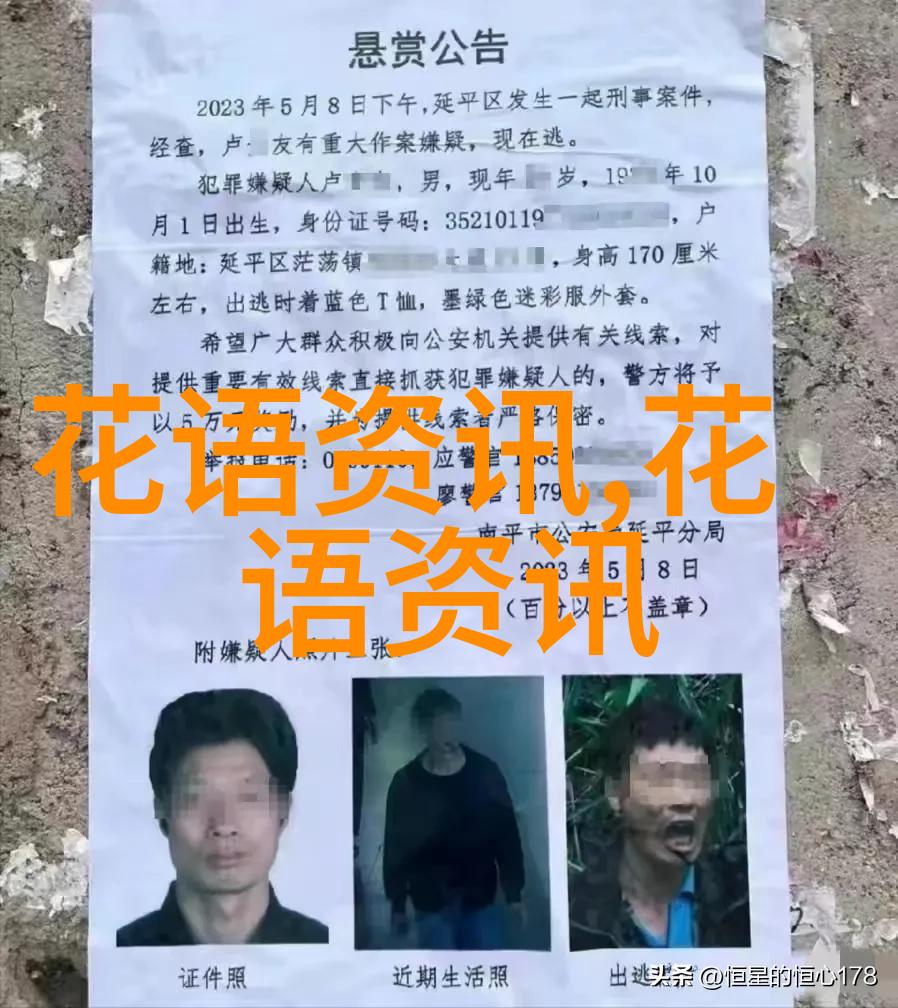 悬赏公告
2023年5月8日下午,延平区发生一起刑事案件,
经查,卢 友有重大作案嫌疑,现在逃。
犯罪嫌疑人卢 ,男,现年 岁,19 年10
月1日出生,身份证号码:35210119 ,户
籍地:延平区茫荡镇 ,身高170厘米
左右,出逃时着蓝色T恤,墨绿色迷彩服外套。
希望广大群众积极向公安机关提供有关线索,对
提供重要有效线索直接抓获犯罪嫌疑人的,警方将予
以5万 ,并 提供线索者严格保密。
举报电话:0 应警官
廖警官
南平市公安 延平分局
2023年5月8日
(百份以上不盖章)
附嫌疑人照片 张
花语资讯,花
语资讯
证件照
近期生活照
出逃
头条 @恒星的恒心178